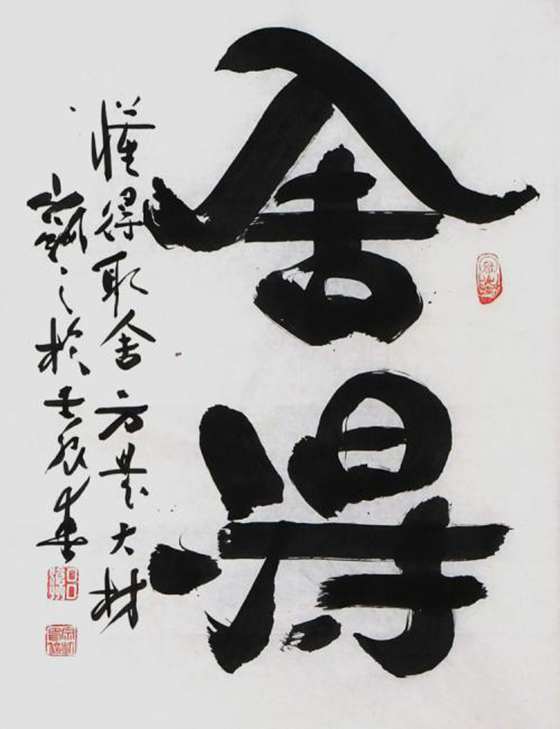 舍得
懂得取舍方是大材
之於壬辰春